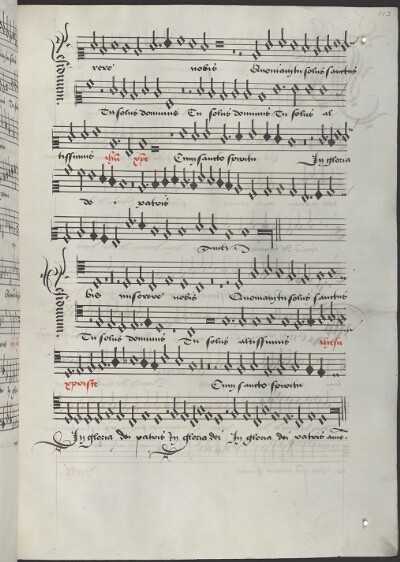 113
rere nobis Quoniam tu solus sanctus
Tu solus dominus Tu solus dominus Tu solus al
tissimus ihū xp̄e Cum sancto spiritu In gloria
de patris
Amen
bis miserere nobis Quoniam tu solus sanctus
Tu solus dominus Tu solus altissimus ihesu
xpriste Cum sancto spiritu
In gloria dei patris In gloria dei In gloria dei patris ame.